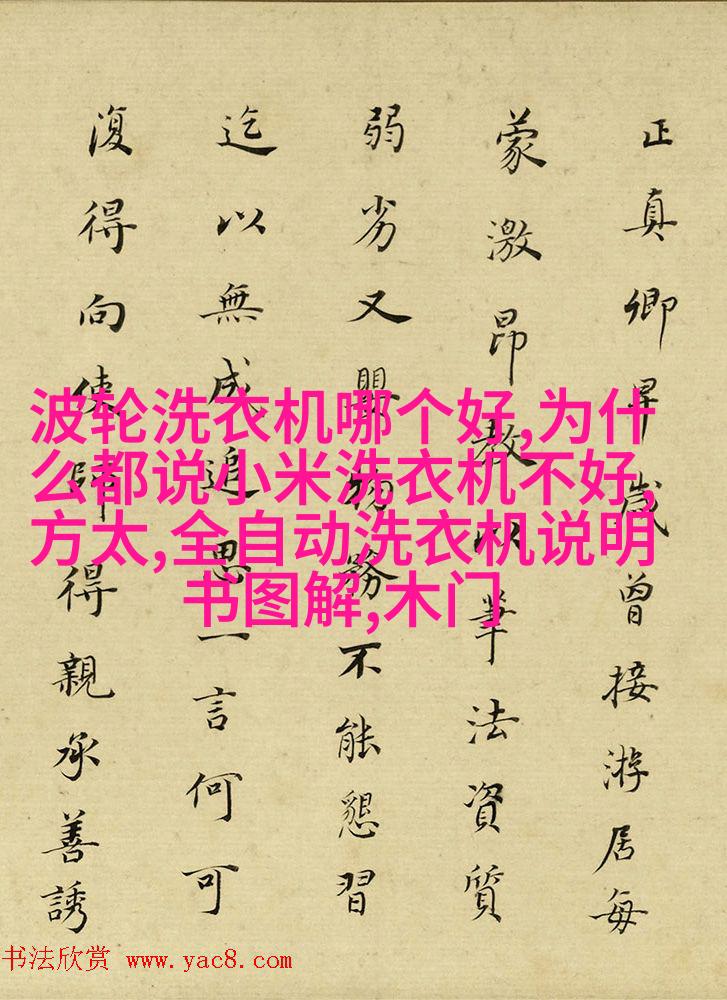 正真卿早歲曾接游居每
蒙激昂教以筆法資質
弱劣又嬰物務不能懇習
迄以無成追思一言何可
復得向使師得親承善誘
波轮洗衣机哪个好,为什
么都说小米洗衣机不好,
方太,全自动洗衣机说明
书图解,木门
书法欣赏 www.yac8.com